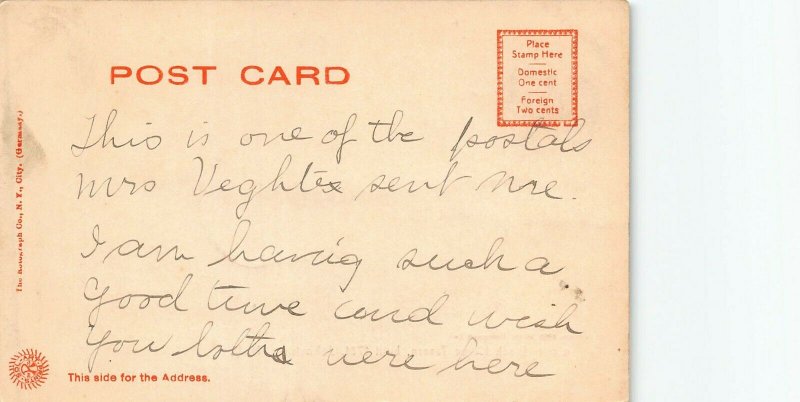 POST CARD
Place
Stamp Here
Domestic
One cent
Foreign
Two cents
The Rotograph Co., N. Y., City. (Germany.)
This is one of the postals
Mrs Veghte sent me.
I am having such a
good time and wish
you both were here
This side for the Address.